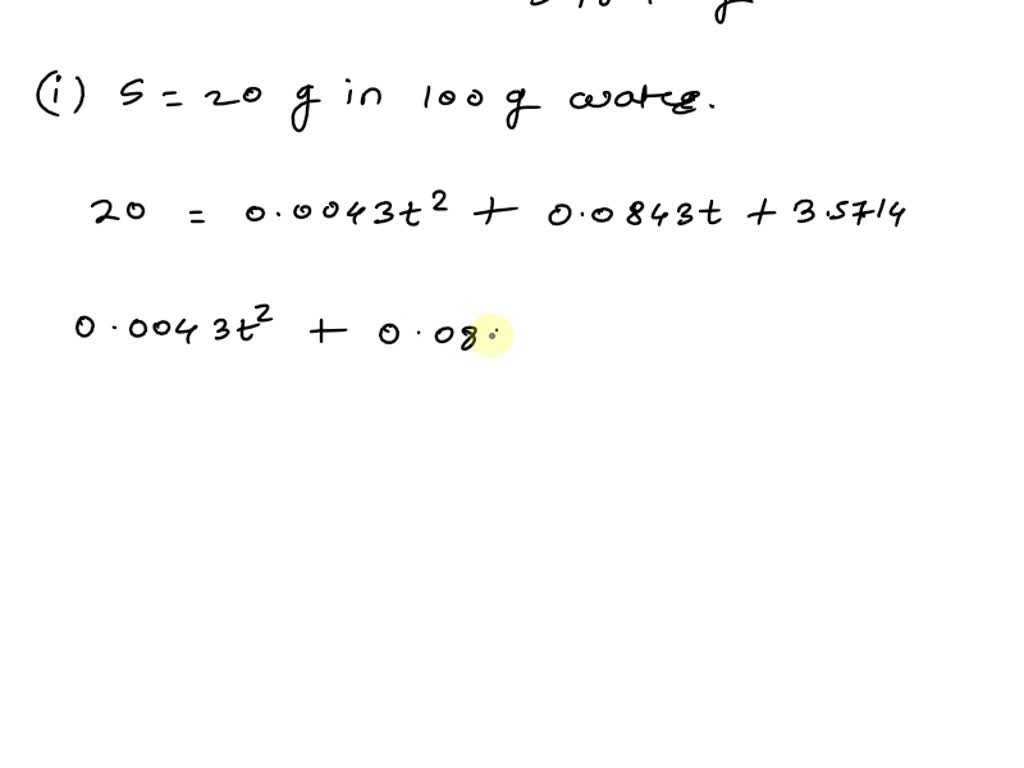 (i) S = 20 g in 100 g water.
20 = 0.0043t² + 0.0843t + 3.5714
0.0043t² + 0.08